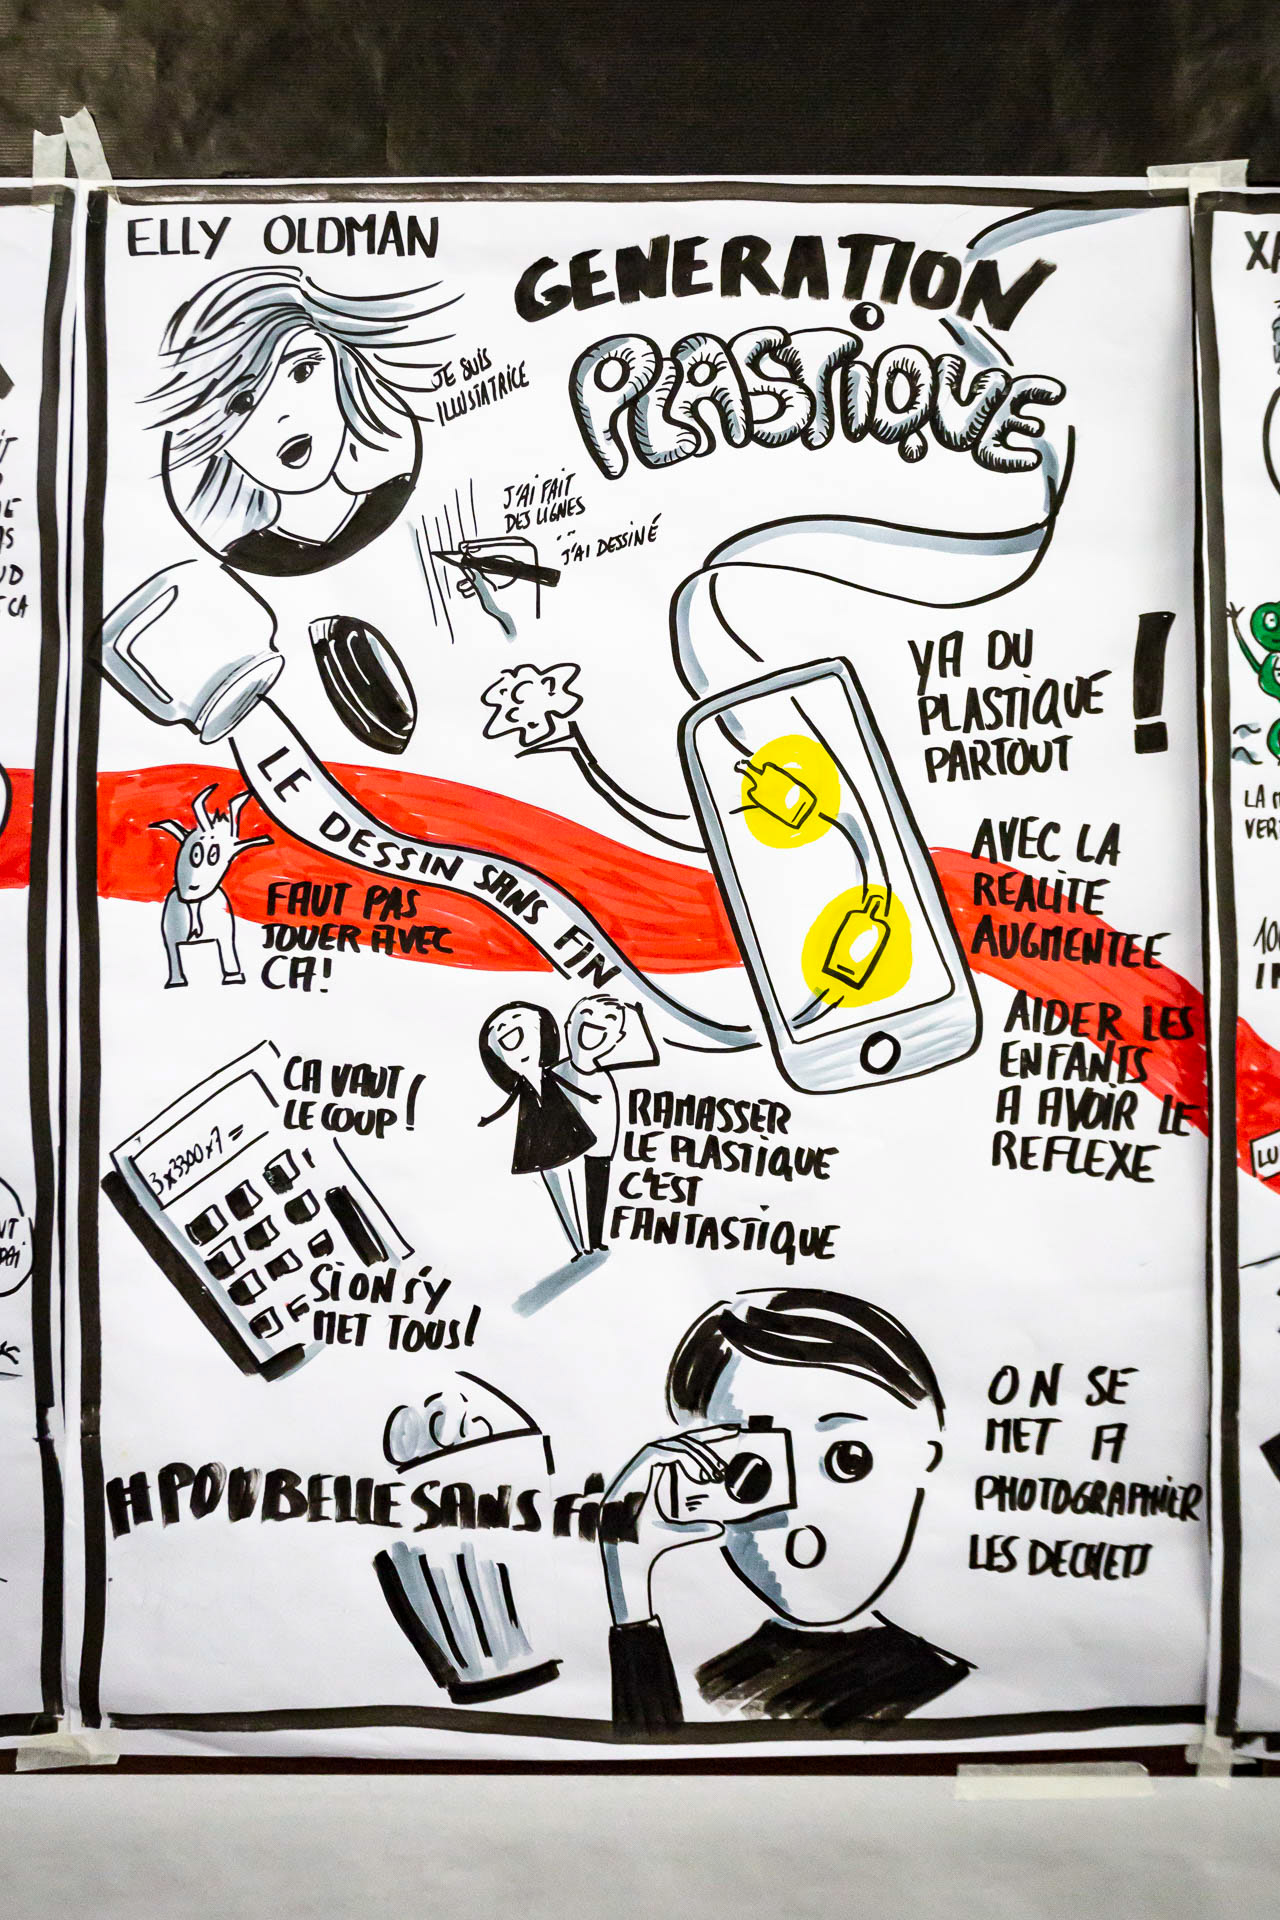 ELLY OLDMAN
GENERATION
PLASTIQUE
JE SUIS
ILLUSTATRICE
J'AI FAIT
DES LIGNES
...
J'AI DESSINÉ
YA DU
PLASTIQUE
PARTOUT
!
LE DESSIN SANS FIN
FAUT PAS
JOUER AVEC
CA!
AVEC LA
REALITE
AUGMENTEE
AIDER LES
ENFANTS
A AVOIR LE
REFLEXE
CA VAUT
LE COUP!
3x3300x7=
SI ON S'Y
MET TOUS!
RAMASSER
LE PLASTIQUE
C'EST
FANTASTIQUE
#POUBELLESANSFIN
ON SE
MET A
PHOTOGRAPHIER
LES DECHETS
XA
LA M
VER
100
LU
CA